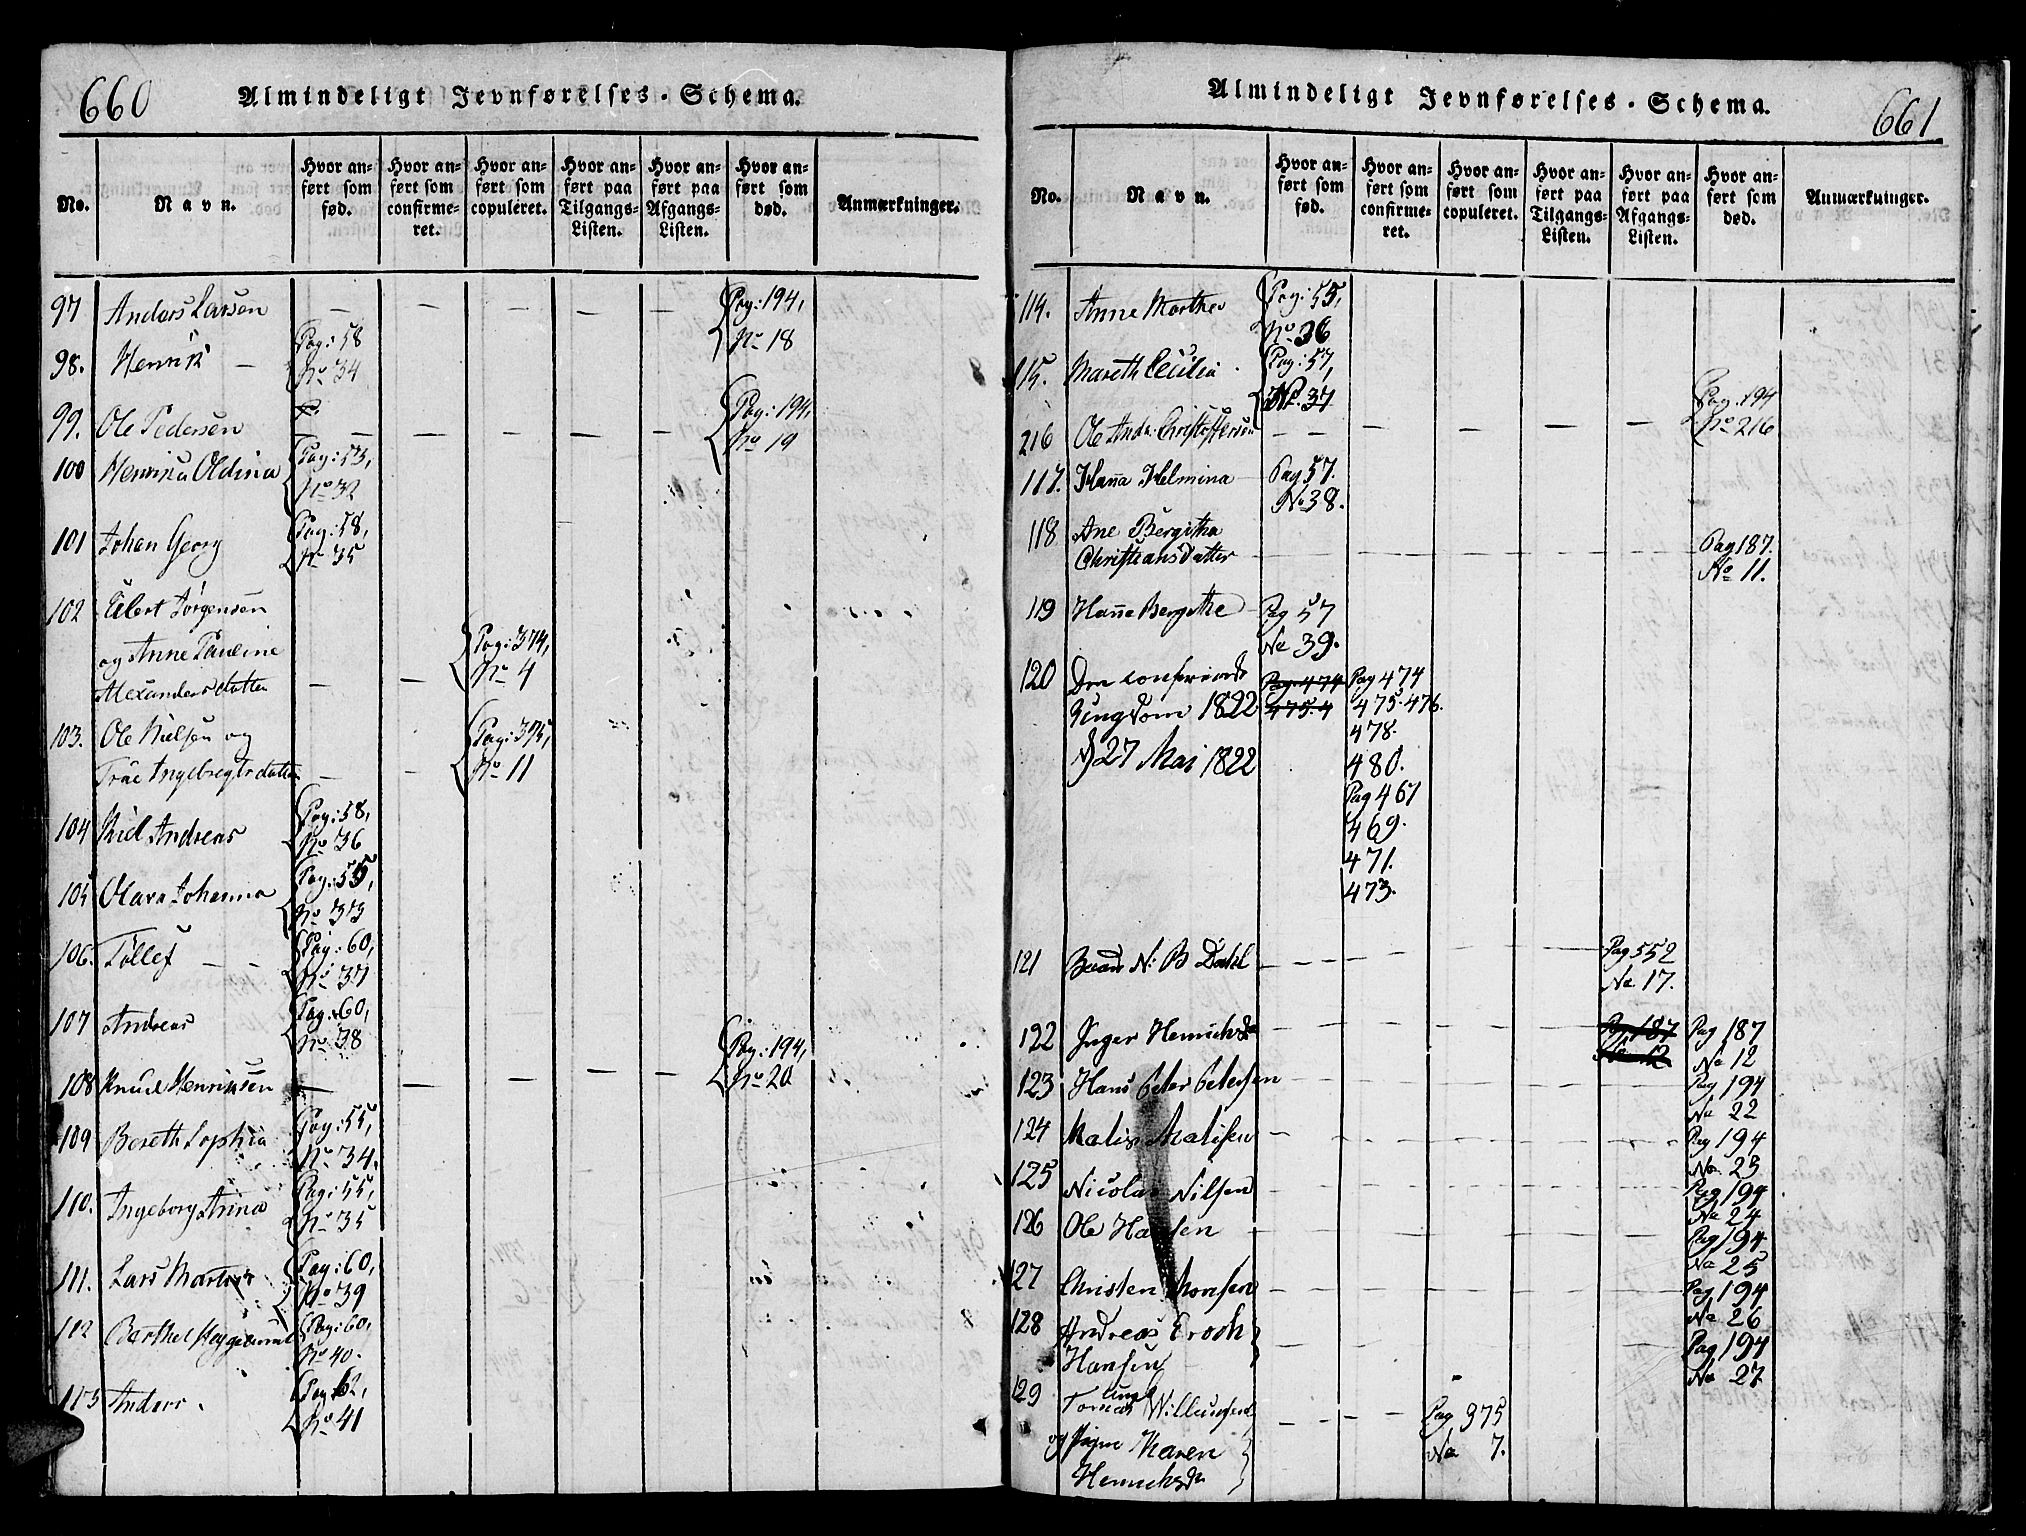 660
Almindeligt Jevnførelses-Schema.
No.
Navn.
Hvor an-
ført som
fød.
Hvor an-
ført som
confirme-
ret.
Hvor an-
ført som
copuleret.
Hvor an-
ført paa
Tilgangs-
Listen.
Hvor an-
ført paa
Afgangs-
Listen.
Hvor an-
ført som
død.
Anmærkninger.
97 Anders Larsen — — — — — Pag: 194,
No 18
98. Henrik — Pag: 58
No 34
99. Ole Pedersen — — — — — Pag: 194,
No 19
100 Henrica Oldina Pag: 53,
No 32
101 Johan Georg Pag: 58,
No 35
102 Eilert Jørgensen
og Anne Pauline
Alexandersdatter — — Pag: 374,
No 4
103. Ole Nielsen og
Ingebregtsdatter — — Pag: 375,
No 11
104 Niel Andreas Pag: 58,
No 36
105 Olava Johanna Pag: 55,
No 33
106. Tollef — — Pag: 60,
No 37
107 Andreas Pag: 60,
No 38
108 Knud Henriksen — — — — — Pag: 194,
No 20
109 Bereth Sophia Pag: 55,
No 34.
110. Ingeborg Anna Pag: 55,
No 35
111. Lars Martin Pag: 60,
No 39
112 Barthel Pag: 60,
No 40.
113 Anders. Pag: 62,
No 41
Almindeligt Jevnførelses-Schema.
661
No.
Navn.
Hvor an-
ført som
fød.
Hvor an-
ført som
confirme-
ret.
Hvor an-
ført som
copuleret.
Hvor an-
ført paa
Tilgangs-
Listen.
Hvor an-
ført paa
Afgangs-
Listen.
Hvor an-
ført som
død.
Anmærkninger.
114. Anne Marthe Pag: 55,
No 36
115. Mareth Cecilia. Pag: 57,
No. 37
216 Ole Andr. Christoffersen — — — — — Pag. 194
No 216
117. Hanna Helmina Pag 57.
No 38.
118 Ane Bergitha
Christiansdatter — — — — — Pag 187.
No 11.
119 Hanna Bergithe Pag 57
No 39.
120 Den confirmerede Pag 474 Pag 474
Ungdom 1822 475. 4 475. 476.
27 Mai 1822 478.
480.
Pag 467
469.
471.
473.
121 N: B Dahl — — — — Pag 552
No 17.
122 Inger Henrichsda — — — — Pag 187 Pag 187
No 12 No 12
123 Hans Peter Petersen — — — — Pag 194
No 22
124 Matis Matisen — — — — — Pag 194
No 23
125 Nicolai Nilsen — — — — — Pag 194
No 24
126 Ole Hansen — — — — — Pag 194
No 25
127 Christen — — — — — Pag 194
No 26
128 Andreas Eroch
Hansen — — — — — Pag 194
No 27
129 Ungk
Tomas Willumsen — — Pag 375
og Pigen Maren No 7.
Henrichsda